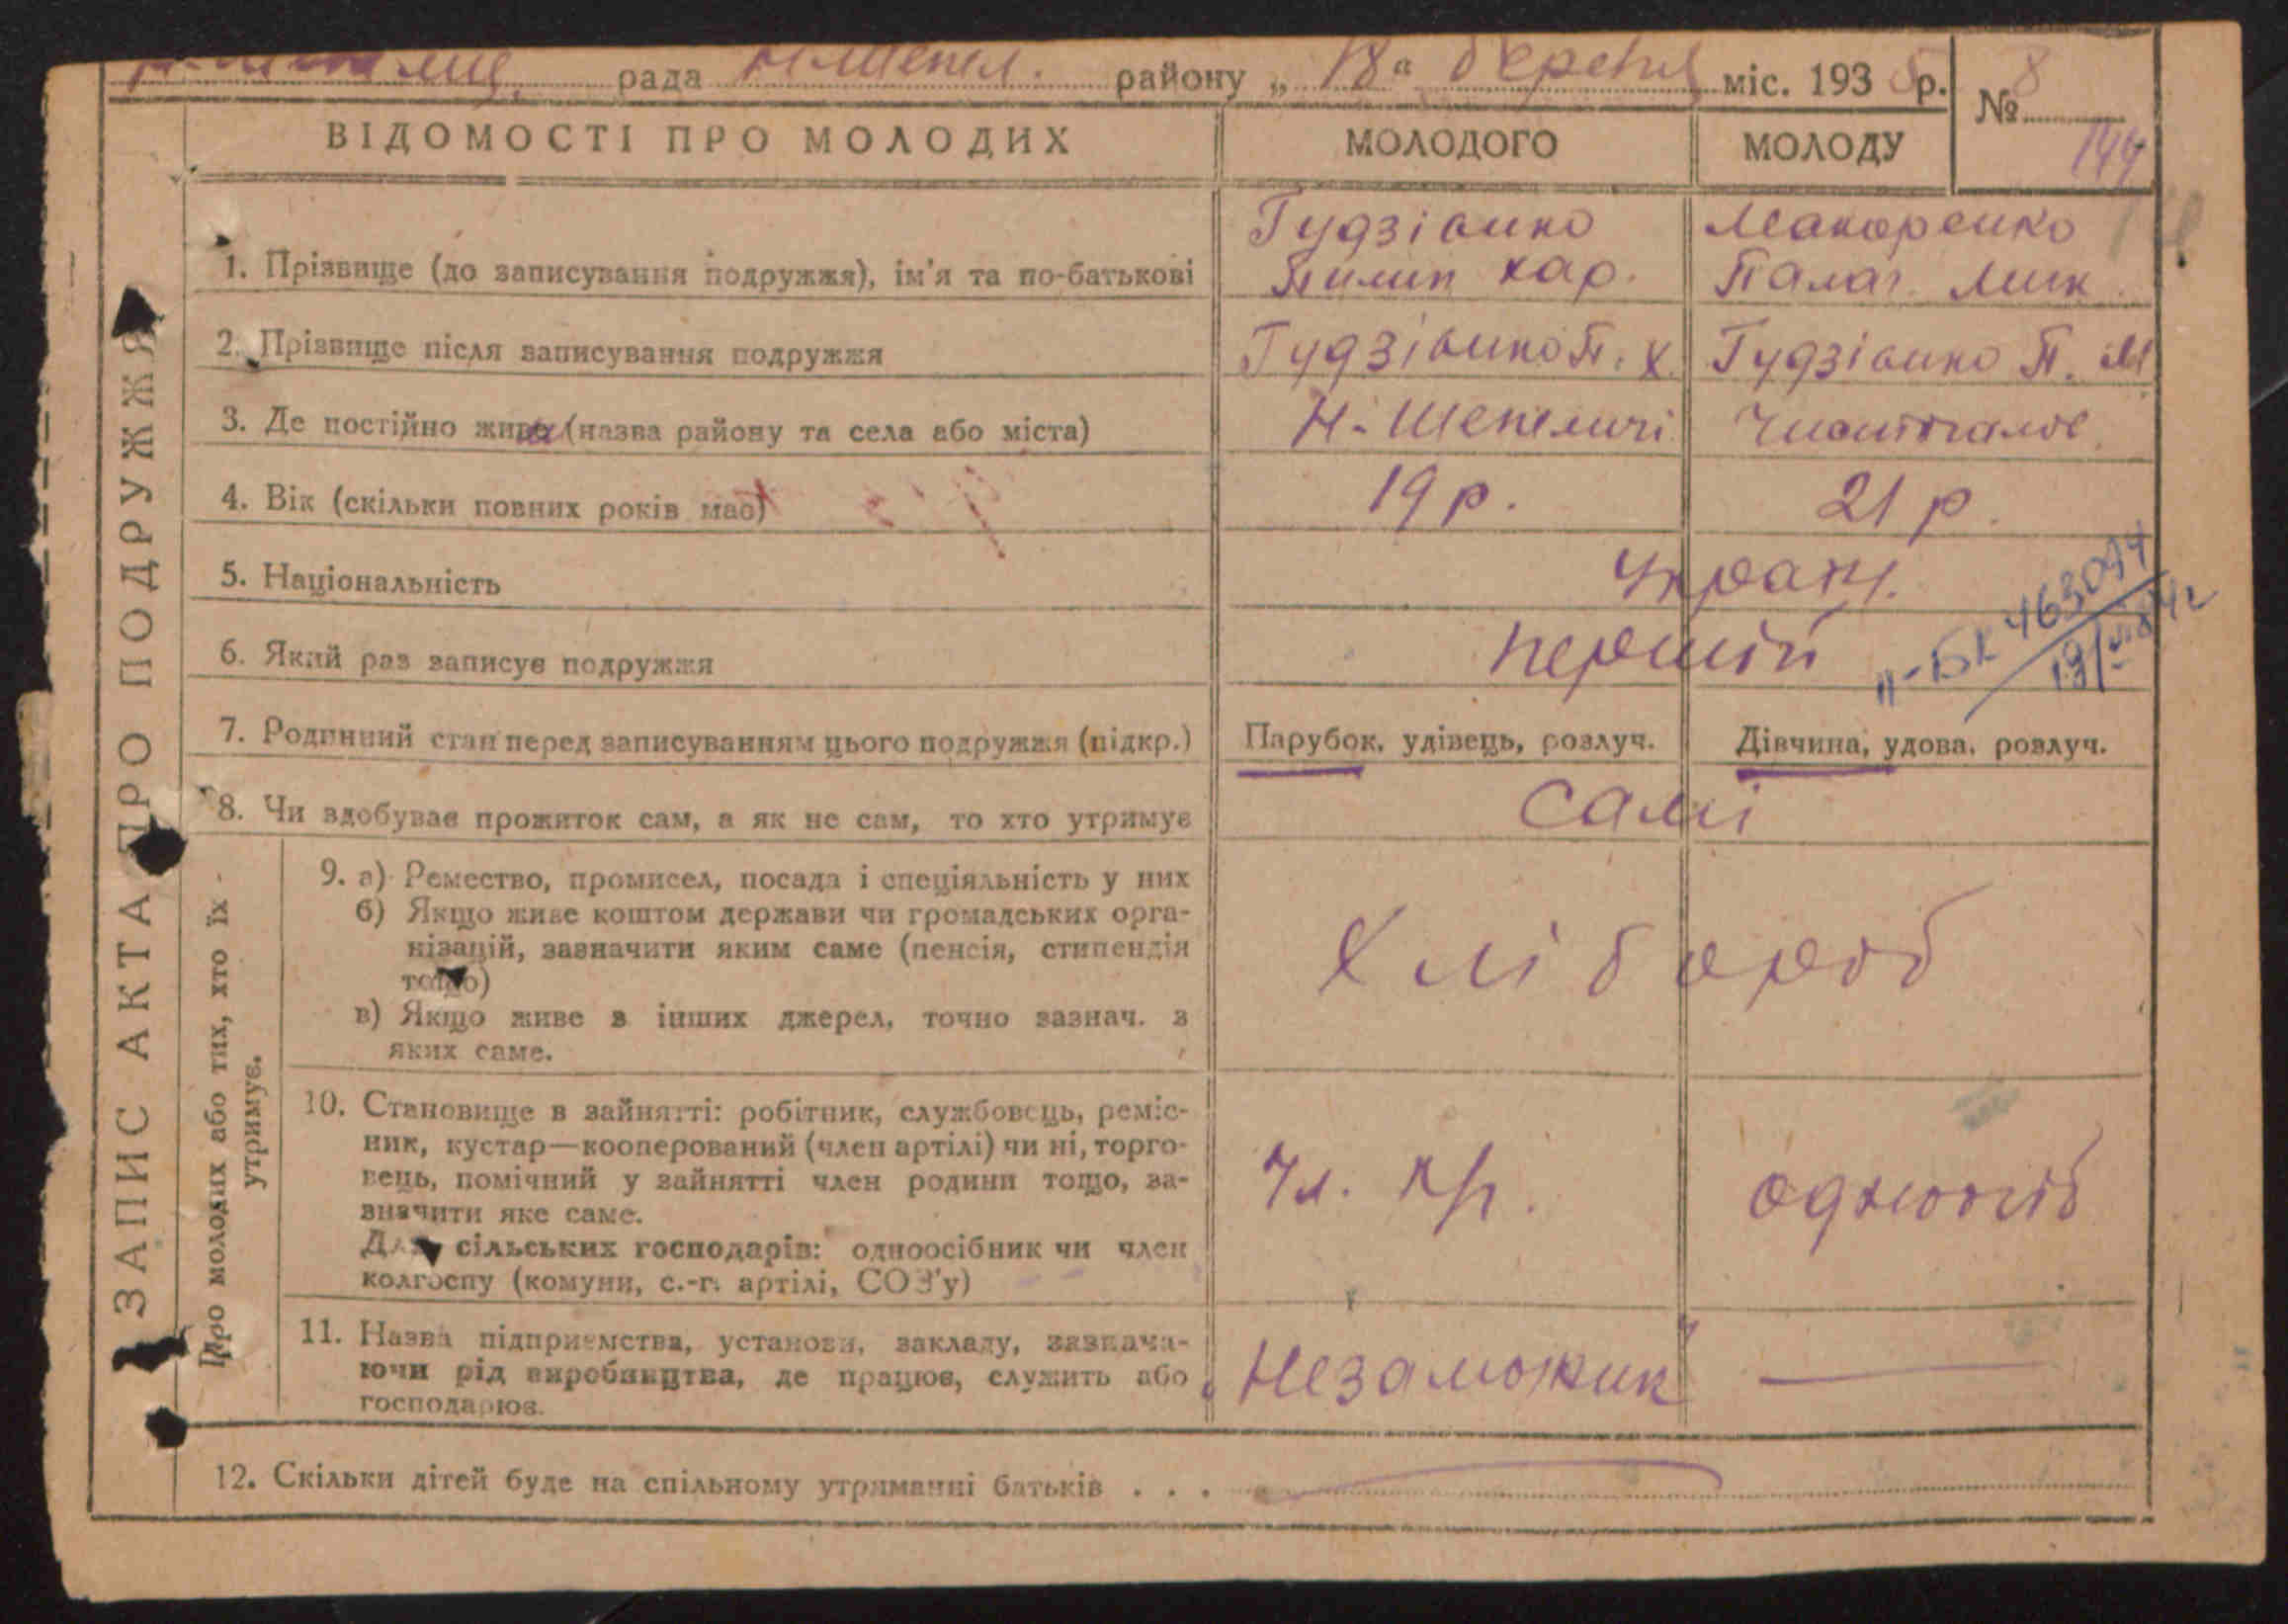 рада Н-Шепел. району „ 18 " березня міс. 1935 р.
№ 8
144
ВІДОМОСТІ ПРО МОЛОДИХ
МОЛОДОГО
МОЛОДУ
ЗАПИС АКТА ПРО ПОДРУЖЖЯ
1. Прізвище (до записування подружжя), ім'я та по-батькові
Гудзівико
Пилип Хар.
Макаренко
Палаг. Мик.
2. Прізвище після записування подружжя
Гудзівико П. Х.
Гудзівико П. М
3. Де постійно живе (назва району та села або міста)
Н-Шепеличі
Чистогалов.
4. Вік (скільки повних років має)
19 р.
21 р.
5. Національність
Украін.
6. Який раз записує подружжя
перший
"-БК 463044
19/VIII 42
7. Родинний стан перед записуванням цього подружжя (підкр.)
Парубок, удівець, розлуч.
Дівчина, удова, розлуч.
8. Чи здобуває прожиток сам, а як не сам, то хто утримує
самі
Про молодих або тих, хто їх
утримує.
9. а) Ремество, промисел, посада і спеціяльність у них
б) Якщо живе коштом держави чи громадських орга-
нізацій, зазначити яким саме (пенсія, стипендія
тощо)
в) Якщо живе з інших джерел, точно зазнач. з
яких саме.
Хлібороб
10. Становище в зайнятті: робітник, службовець, реміс-
ник, кустар—кооперований (член артілі) чи ні, торго-
вець, помічний у зайнятті член родини тощо, за-
значити яке саме.
Для сільських господарів: одноосібник чи член
колгоспу (комуни, с.-г. артілі, СОЗ'у)
Чл. к/г.
одноосіб
11. Назва підприємства, установи, закладу, зазнача-
ючи рід виробництва, де працює, служить або
господарює.
"Незаможник"
12. Скільки дітей буде на спільному утриманні батьків . . .